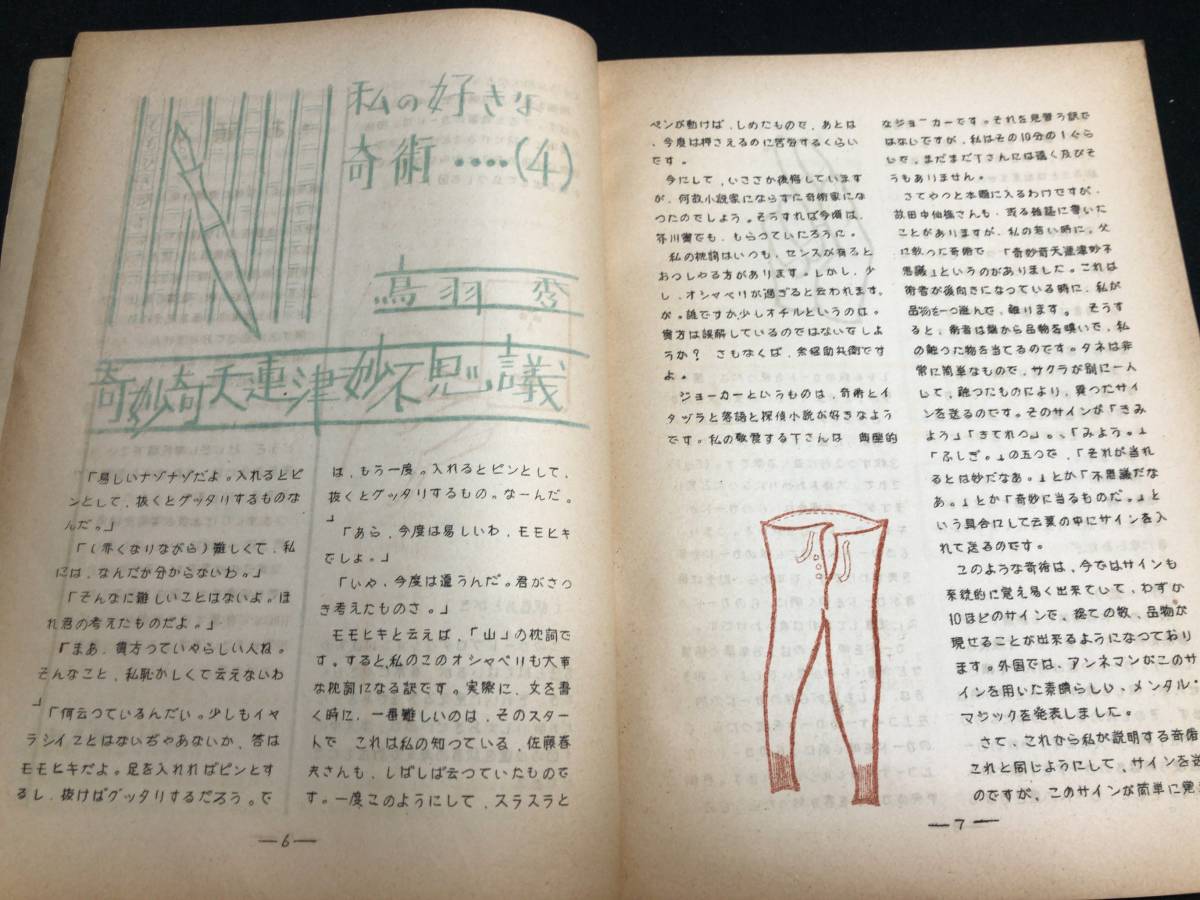 私の好きな
奇術‥‥(4)
鳥羽 秀
奇妙奇天連津妙不思議
「易しいナゾナゾだよ。入れるとピ
ンとして、抜くとグッタリするものな
んだ。」
「(赤くなりながら)難しくて、私
には、なんだか分からないわ。」
「そんなに難しいことはないよ。ほ
れ君の考えたものだよ。」
「まあ、貴方っていやらしい人ね。
そんなこと、私恥かしくて云えないわ
」
「何云つているんだい。少しもイヤ
ラシイことはないぢやあないか、答は
モモヒキだよ。足を入れればピンとす
るし、抜けばグッタリするだろう。で
は、もう一度。入れるとピンとして、
抜くとグッタリするもの。なーんだ。
」
「あら、今度は易しいわ、モモヒキ
でしよ。」
「いや、今度は違うんだ。君がさつ
き考えたものさ。」
モモヒキと云えば、「山」の枕詞で
す。すると、私のこのオシャベリも大事
な枕詞になる訳です。実際に、文を書
く時に、一番難しいのは、そのスター
トで これは私の知つている、佐藤春
夫さんも、しばしば云つていたもので
す。一度このようにして、スラスラと
—6—
ペンが動けば、しめたもので、あとは
、今度は押さえるのに苦労するくらい
です。
今にして、いささか後悔しています
が、何故小説家にならずに奇術家にな
つたのでしよう。そうすれば今頃は、
芥川賞でも、もらつていたろうに。
私の枕詞はいつも、センスが有ると
おつしやる方があります。しかし、少
し、オシャベリが過ぎると云われます。
が。誰ですか、少しオチルというのは。
貴方は誤解しているのではないでしよ
うか? さもなくば、余程助兵衛です
よ。
ジョーカーというものは、奇術とイ
タヅラと落語と探偵小説が好きなよう
です。私の敬愛するTさんは 典型的
なジョーカーです。それを見習う訳で
はないですが、私はその10分の1ぐら
いで、まだまだTさんには遠く及びそ
うもありません。
さてやつと本題に入るわけですが、
故田中仙樵さんも、或る雑誌に書いた
ことがありますが、私の若い時に、父
に教つた奇術で 「奇妙奇天連津妙不
思議」というのがありました。これは
術者が後向きになつている時に、私が
品物を一つ選んで、触ります。 そうす
ると、術者は端から品物を嗅いで、私
の触つた物を当てるのです。タネは非
常に簡単なもので、サクラが別に一人
して、触つたものにより、異つたサイ
ンを送るのです。そのサインが「きみ
よう」「きてれつ」。、「みよう。」
「ふしぎ。」の五つで、「それが当れ
るとは妙だなあ。」とか「不思議だな
あ。」とか「奇妙に当るものだ。」と
いう具合にして云葉の中にサインを入
れて送るのです。
このような奇術は、今ではサインも
系統的に覚え易く出来ていて、わずか
10ほどのサインで、捨ての数、品物が
現せることが出来るようになつており
ます。外国では、アンネマンがこのサ
インを用いた素晴らしい、メンタル・
マジックを発表しました。
さて、これから私が説明する奇術
これと同じようにして、サインを送
のですが、このサインが簡単に覚
—7—